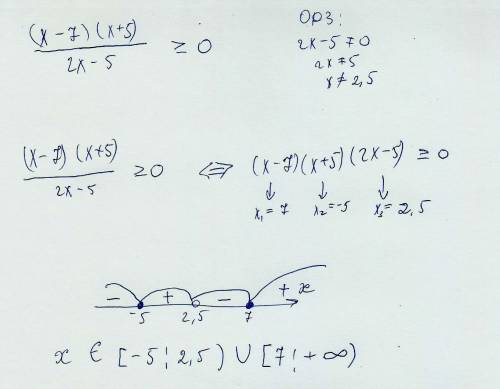 (x-7)(x+5) / 2x-5 ≥ 0
ОРЗ:
2x-5≠0
2x≠5
x≠2,5
(x-7)(x+5) / 2x-5 ≥ 0 ⇔ (x-7)(x+5)(2x-5) ≥ 0
x₁=7 x₂=-5 x₃=2,5
- + - + x
-5 2,5 7
x ∈ [-5; 2,5) ∪ [7; +∞)